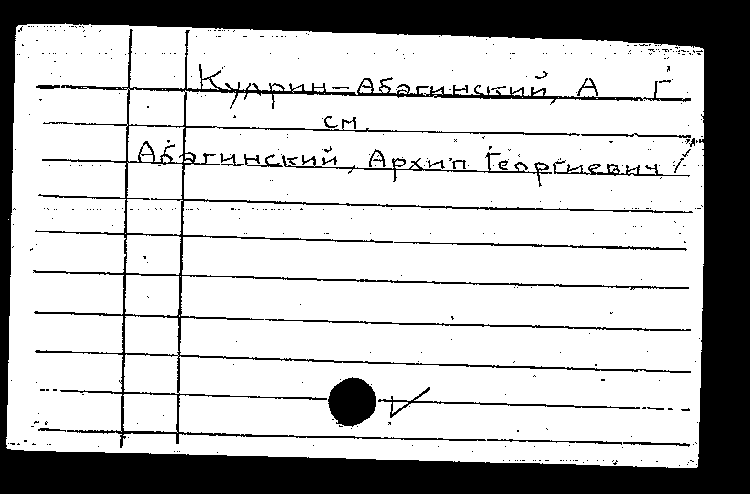 Кудрин-Абагинский, А Г
см.
Абагинский, Архип Георгиевич /